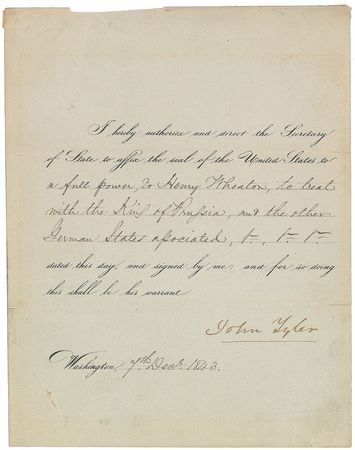 I hereby authorize and direct the Secretary
of State to affix the seal of the United States to
a full power, to Henry Wheaton, to treat
with the King of Prussia, and the other
German States associated, &c., &c. &c.
dated this day, and signed by me: and for so doing
this shall be his warrant.
John Tyler
Washington, 7th Decr. 1843.